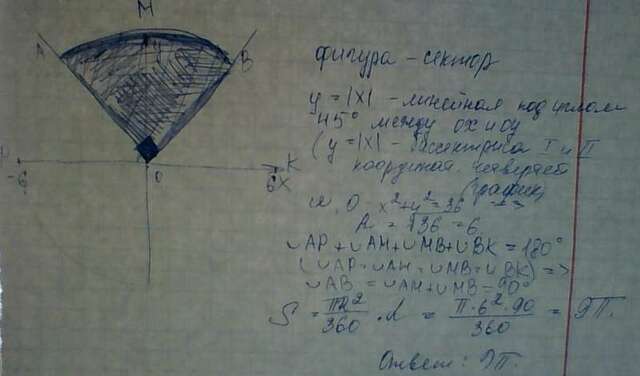 M
A
B
P
K
-6
0
6
X
фигура - сектор
y = |x| - линейная под углом
45° между ox и oy
(y = |x| - биссектриса I и II
координат. четвертей
(график)
x² + y² = 36 =>
R = √36 = 6
∪AP + ∪AM + ∪MB + ∪BK = 180°
(∪AP = ∪AM = ∪MB = ∪BK) =>
∪AB = ∪AM + ∪MB = 90°
S = πR²/360 · α = π·6²·90/360 = 9π.
Ответ: 9π.